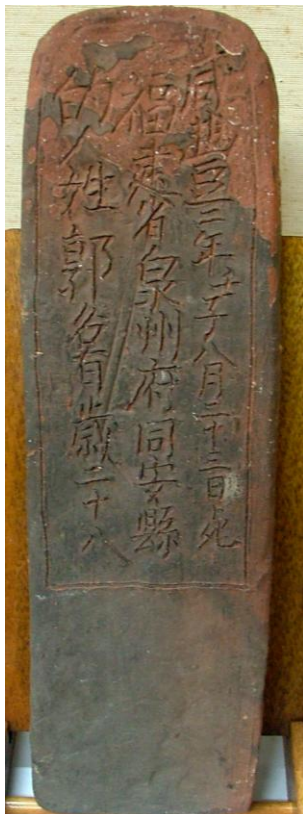 咸豐三年八月二十二日死
福建省泉州府同安縣
的人姓郭名歲二十八